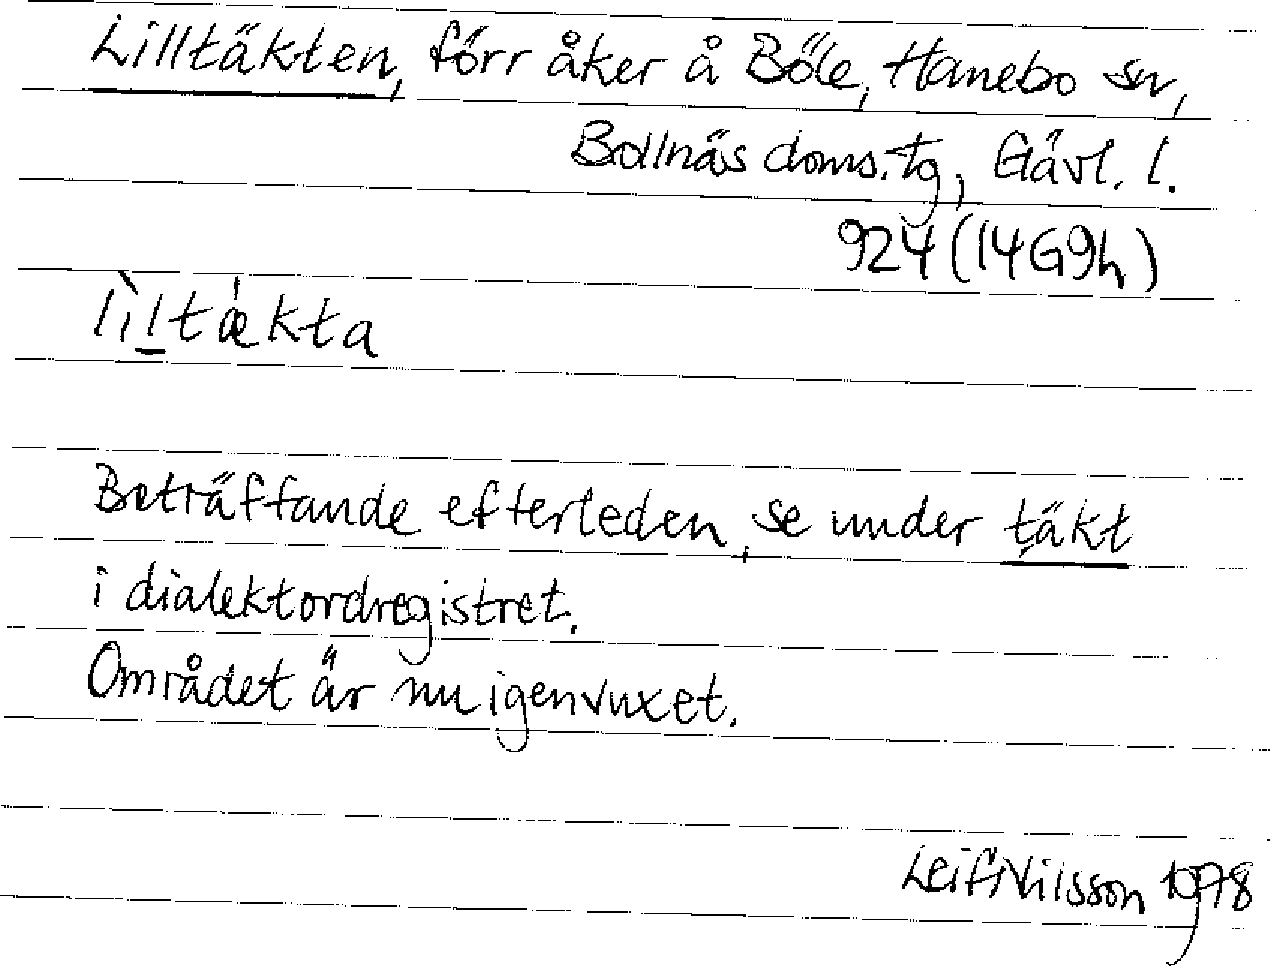 Lilltäkten, förr åker å Böle, Hanebo sn,
Bollnäs doms.tg, Gävl. l.
924 (14G9h)
lìltǽkta
Beträffande efterleden, se under täkt
i dialektordregistret.
Området är nu igenvuxet.
Leif Nilsson 1978